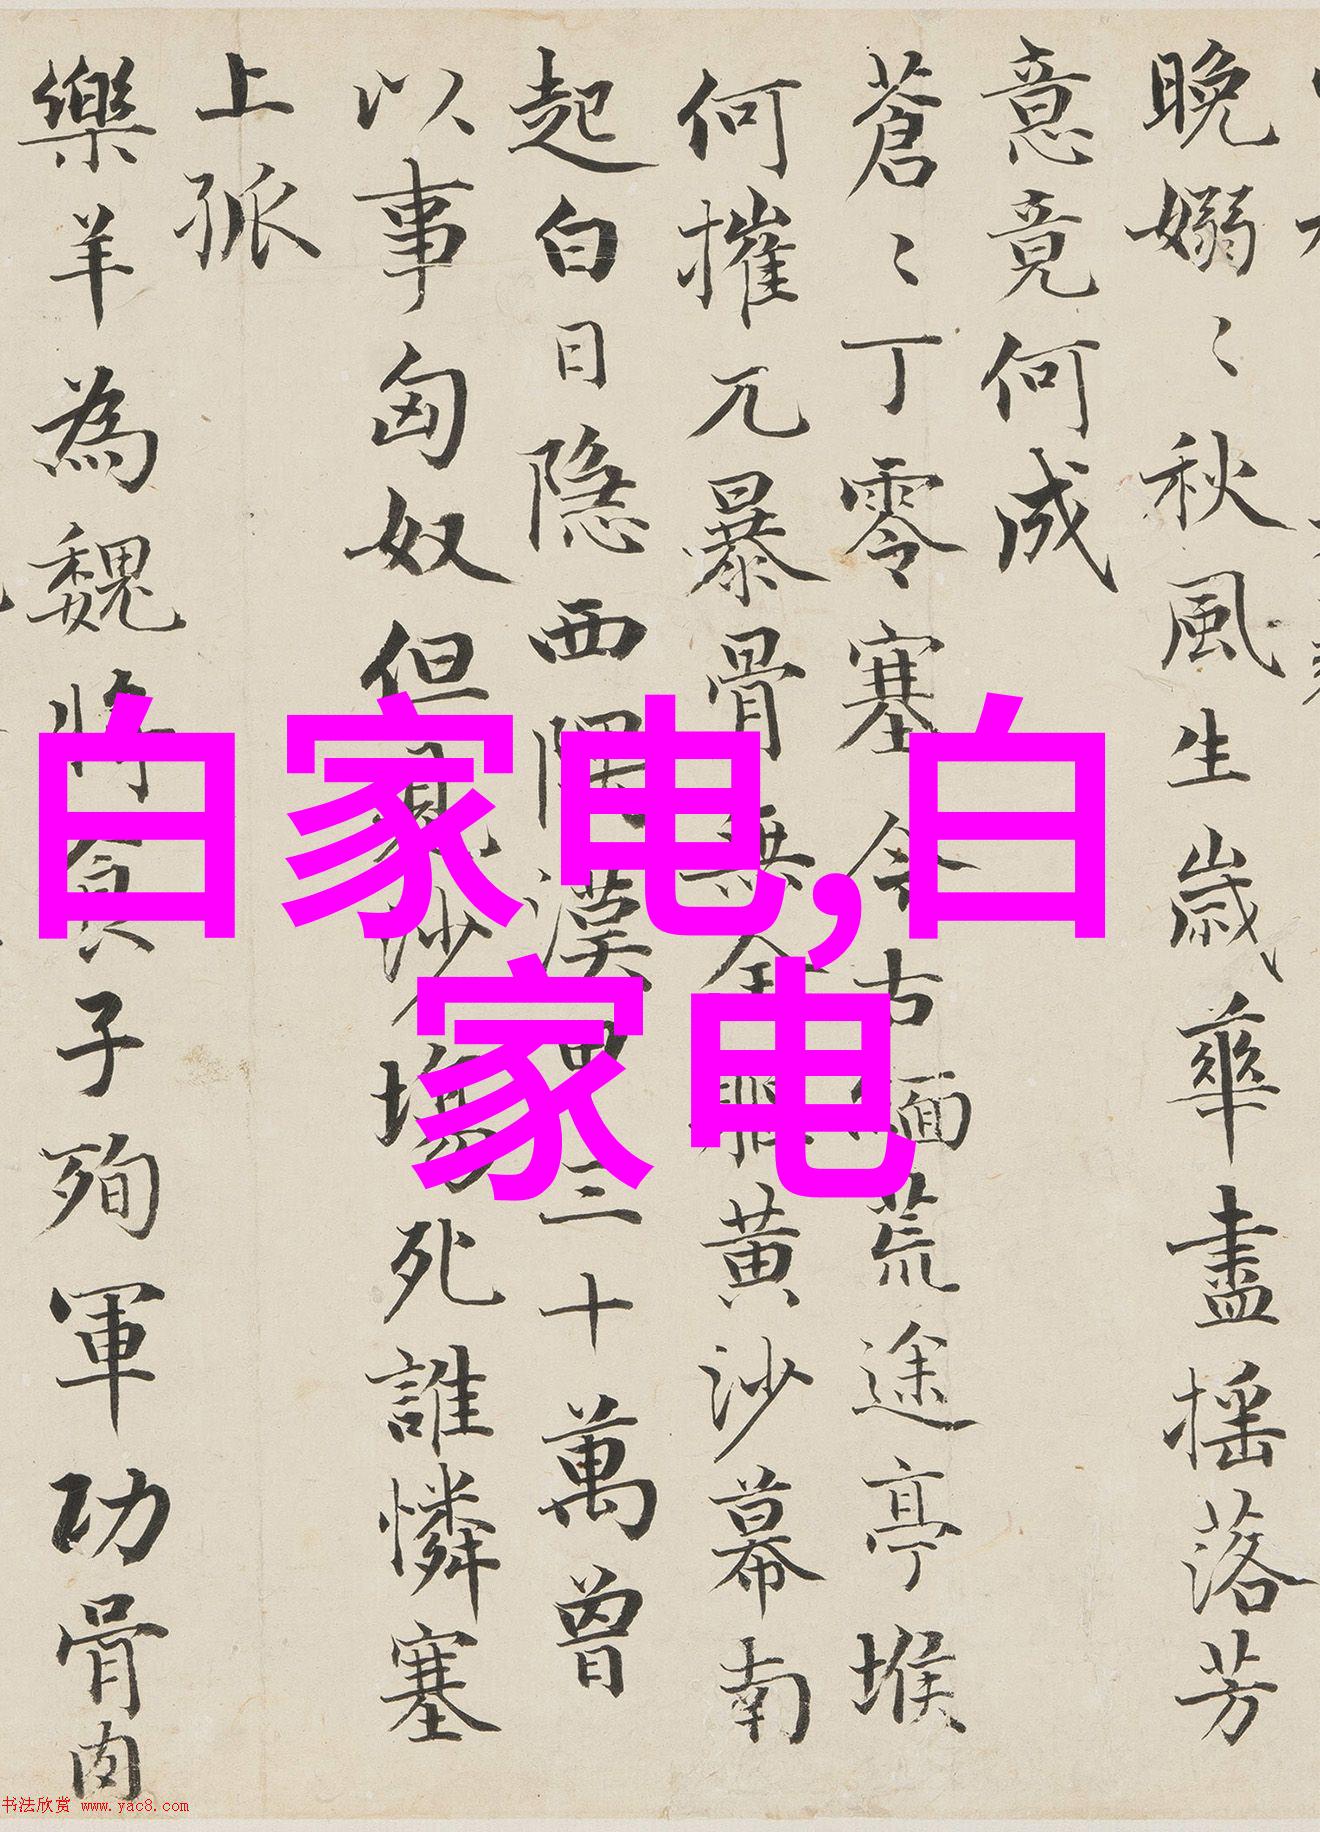 晚嫋〻秋風生歲華盡摇落芳
意竟何成
蒼〻丁零塞今古緬荒途亭堠
何摧兀暴骨無全軀黄沙幕南
起白日隐西隅漢甲三十萬曾
以事匈奴但見沙塲死誰憐塞
上孤
樂羊為魏将食子殉軍功骨肉
白家电,白
家电
书法欣赏 www.yac8.com